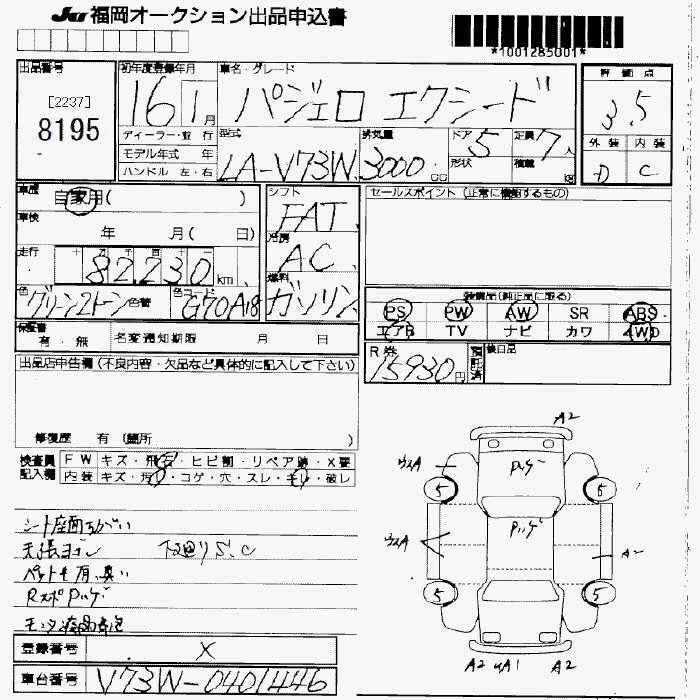 JU 福岡オークション出品申込書
*1001285001*
出品番号
[2237]
8195
初年度登録年月
16 1月
ディーラー・並行
モデル年式 年
ハンドル 左・右
車名・グレード
パジェロ エクシード
型式
LA-V73W
排気量
3000cc
ドア 5
形状
定員 7人
積載 kg
評価点
3.5
外装 内装
D C
車歴 自家用( )
車検 年 月( 日)
走行 十 万 千 百 十 一
82230km
色 グリーン2トーン 色替
色コード G70A18
シフト
FAT
冷房
AC
燃料
ガソリン
セールスポイント(正常に機能するもの)
装備品(純正品に限る)
PS PW AW SR ABS
エアB TV ナビ カワ 4WD
保証書 有・無
名変通知期限 月 日
R券 15930円
預託済
後日品
出品店申告欄(不良内容・欠品など具体的に記入して下さい)
修復歴 有(箇所 )
検査員記入欄
FW キズ・飛石・ヒビ割・リペア跡・X要
内装 キズ・汚レ・コゲ・穴・スレ・キレ・破レ
シート座面
天張ヨゴレ
下回りS.C
A2
ウスA
5
5
ウスA
A2
5
5
A2 A1 A2
登録番号 X
車台番号 V73W-0401446